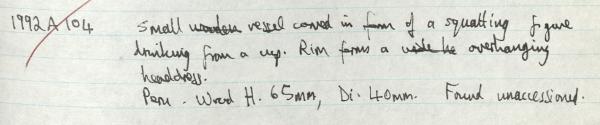 1992 A 104 Small wooden vessel carved in form of a squatting figure
drinking from a cup. Rim forms a wide he overhanging
headdress.
Peru. Wood H. 65mm, Di. 40mm. Found unaccessioned.